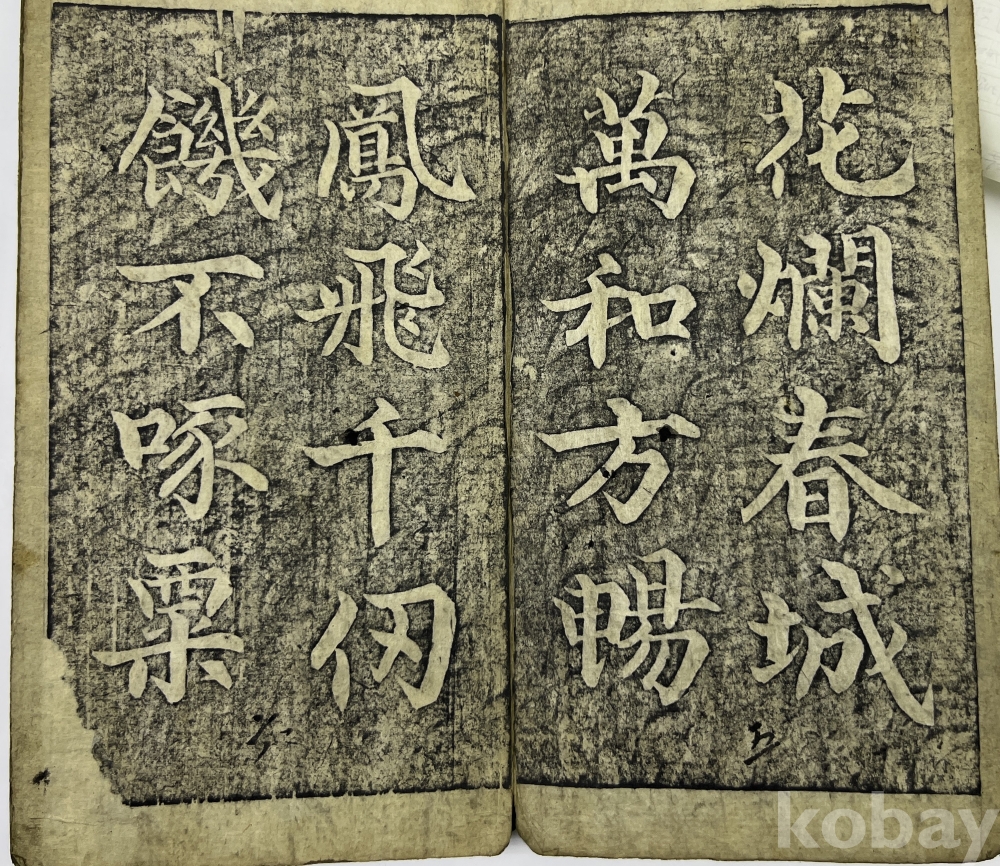 花爛春城
萬和方暢
鳳飛千仞
饑不啄粟
五
六
kobay